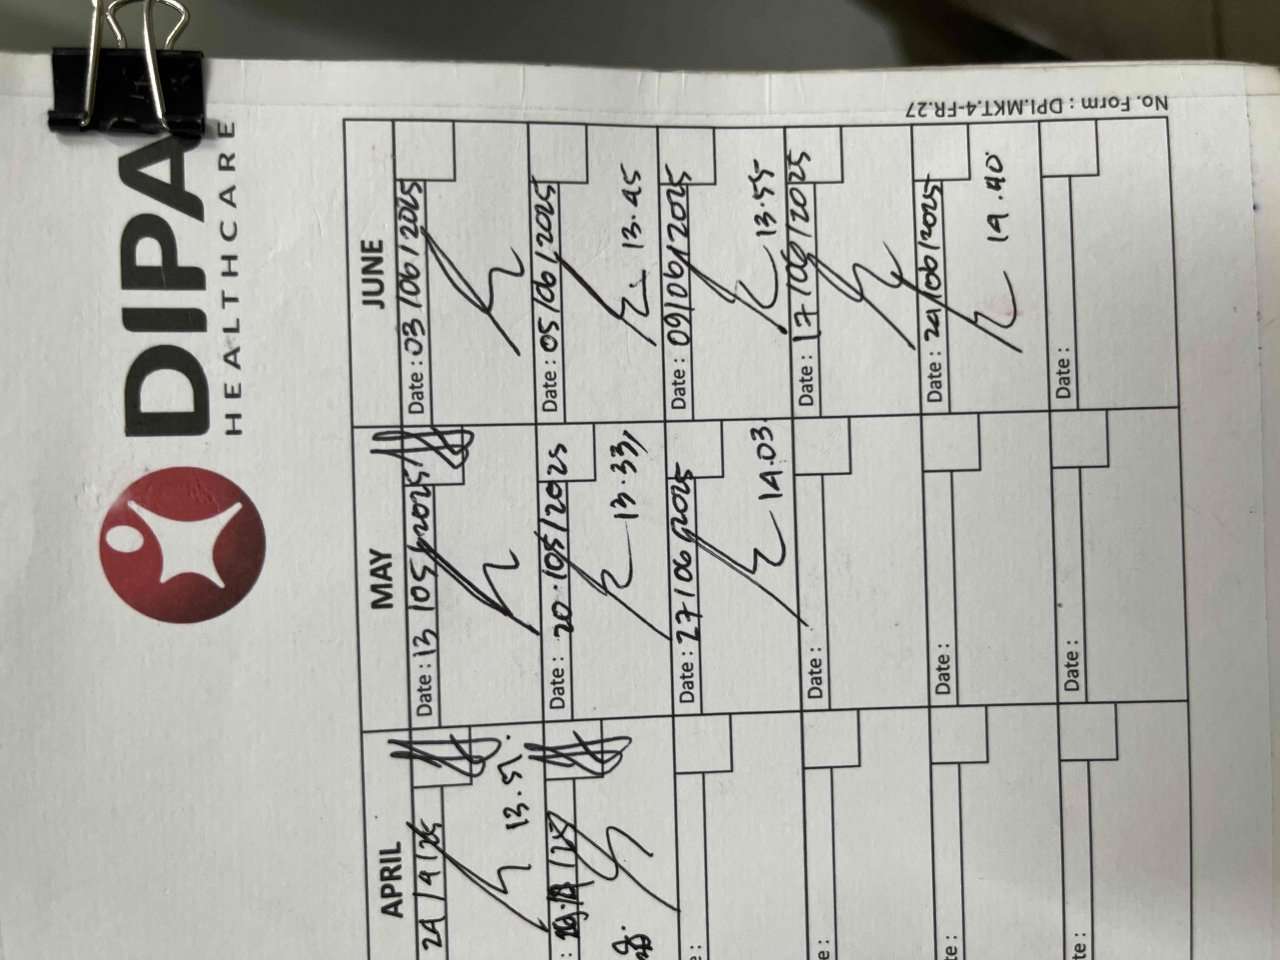 DIPA
HEALTHCARE
No. Form : DPI.MKT.4-FR.27
APRIL
24/4/25
13.51.
MAY
Date : 13/05/2025
Date : 20/05/2025
13.33
Date : 27/06/2025
14.03
Date :
Date :
Date :
JUNE
Date : 03/06/2025
Date : 05/06/2025
13.45
Date : 09/06/2025
13.55
Date : 17/06/2025
Date : 24/06/2025
14.40
Date :